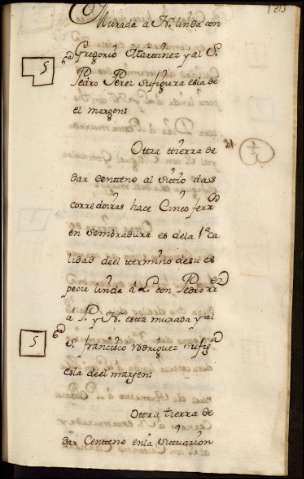 Murada a N. linda con
Gregorio Martinez y al S.
Pedro Perez su figura es la de
el margen:
5
Ottra tierra de
dar centteno al sittio das
corredoiras hace Cinco ferr^dos
en sembradura es de la 1ª Ca
lidad del termino de su es
pecie linda a L. con Pedro
a P. y N. estta murada y al
S. francisco Rodriguez su fig^ra
es la de el margen:
5
Otera tierra de
dar Centteno en la Situacion